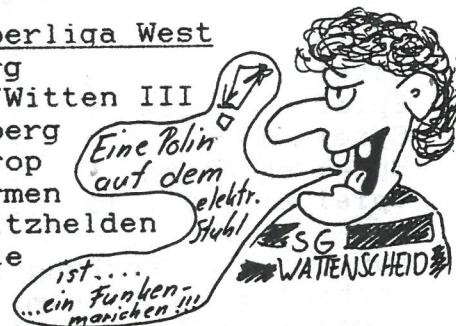 berliga West
rg
Witten III
berg
rop
rmen
itzhelden
e
!
Eine Polin
auf dem
elektr.
Stuhl
ist....
...ein Funken-
mariechen!!!
SG
WATTENSCHEID